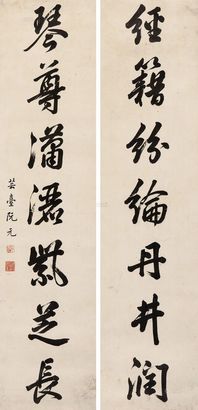 經籍紛綸丹井润
琴尊瀟洒紫芝長
芸臺阮元